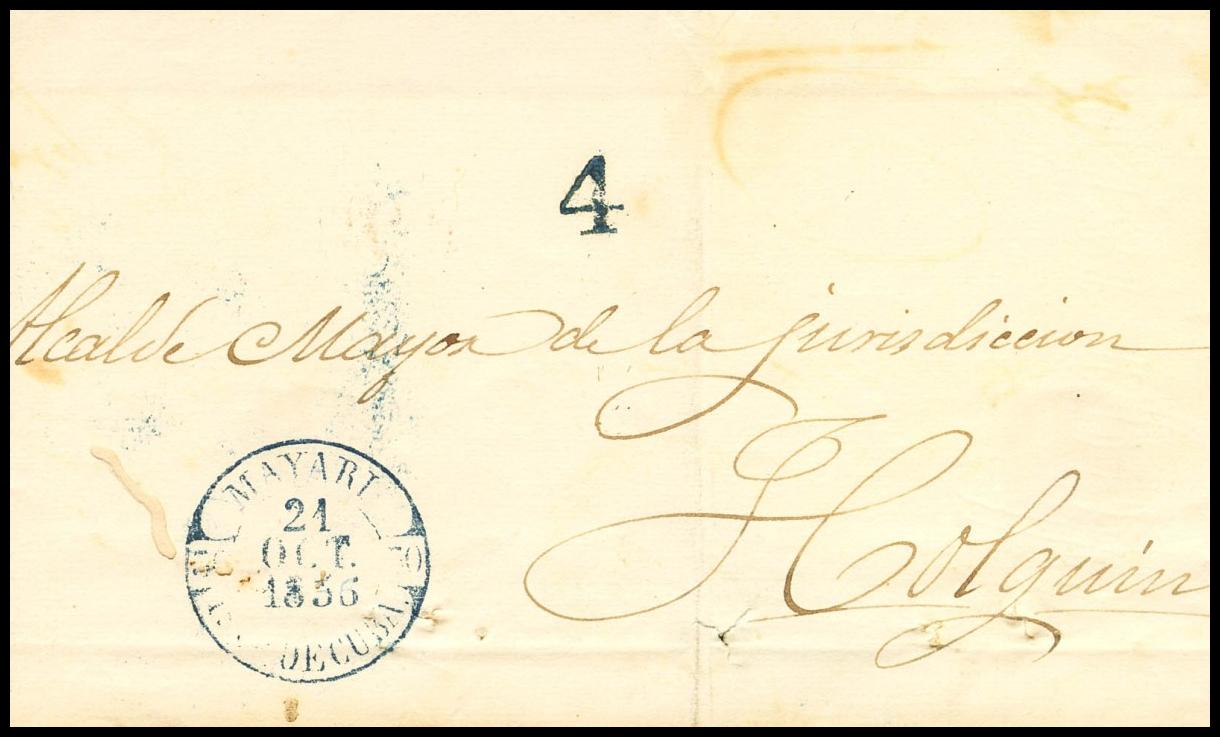 4
Alcalde Mayor de la jurisdiccion
Holguin
MAYARI
21
OCT.
1856
ISLA DE CUBA